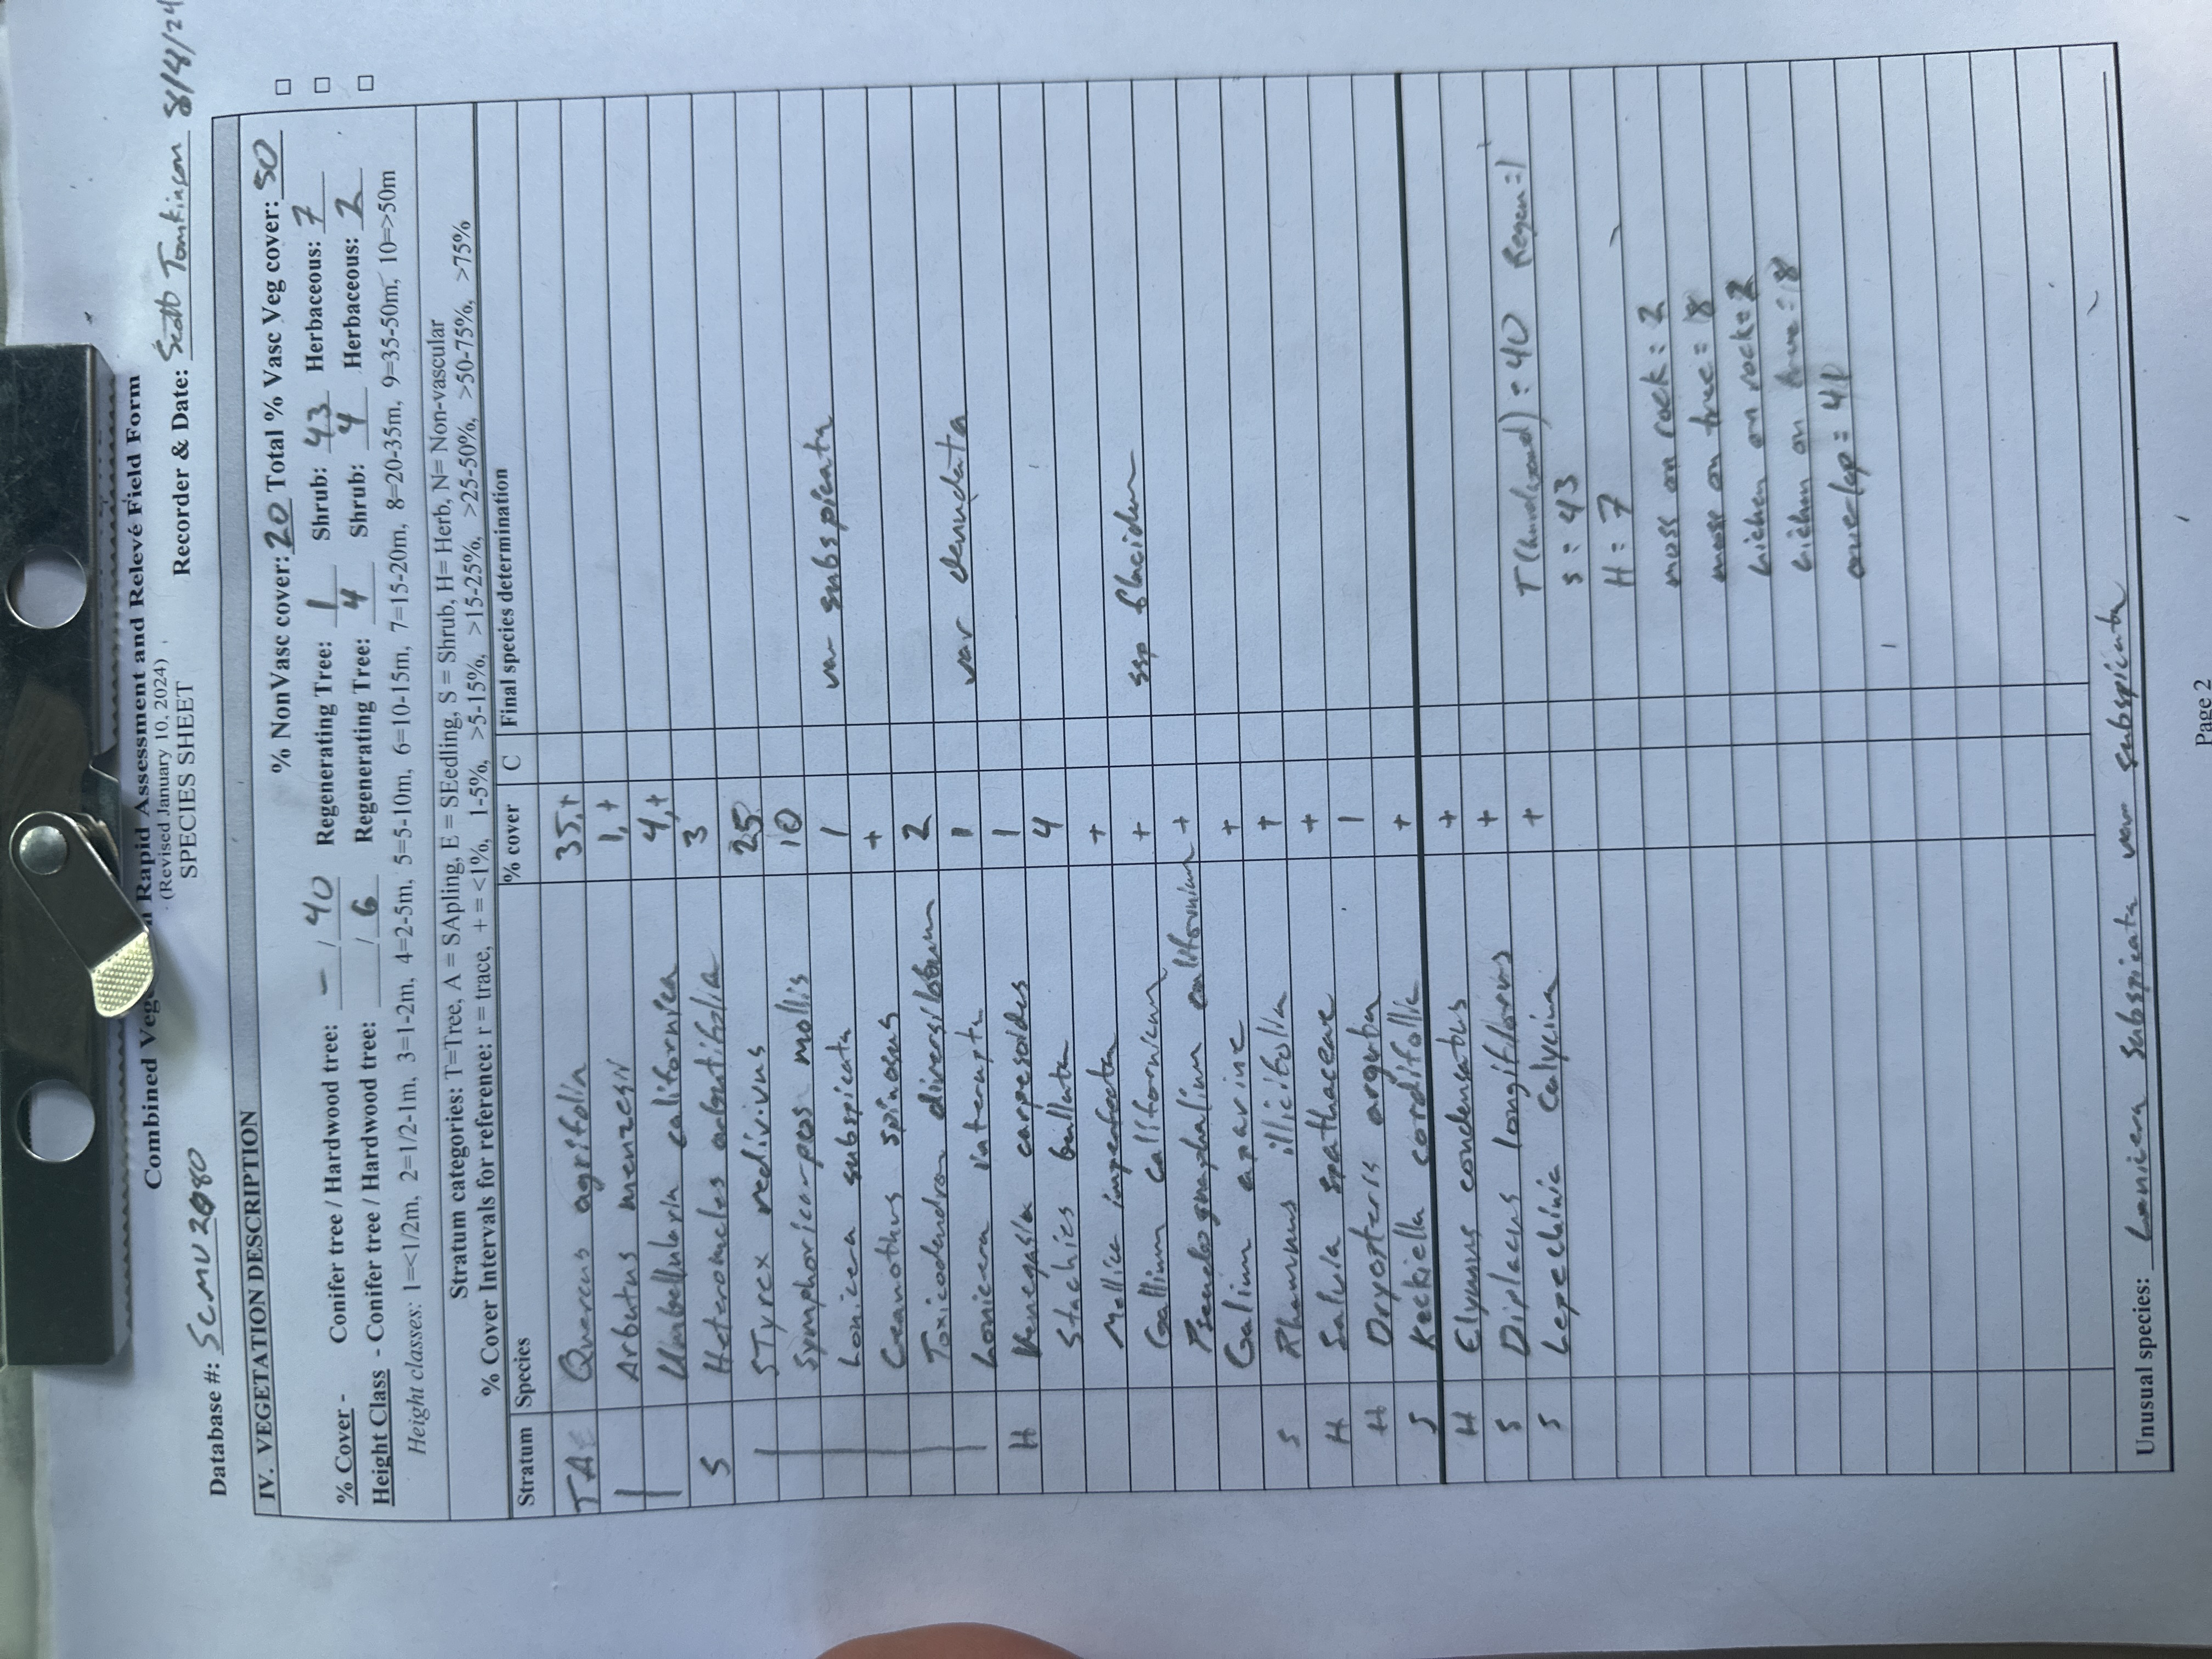 Combined Veg n Rapid Assessment and Relevé Field Form
(Revised January 10, 2024)
SPECIES SHEET
Database #: SCMU2080 Recorder & Date: Scott Tomkinson 8/4/24
IV. VEGETATION DESCRIPTION
% NonVasc cover: 20 Total % Vasc Veg cover: 50 □
% Cover - Conifer tree / Hardwood tree: - / 40 Regenerating Tree: 1 Shrub: 43 Herbaceous: 7 □
Height Class - Conifer tree / Hardwood tree: / 6 Regenerating Tree: 4 Shrub: 4 Herbaceous: 2 □
Height classes: 1=<1/2m, 2=1/2-1m, 3=1-2m, 4=2-5m, 5=5-10m, 6=10-15m, 7=15-20m, 8=20-35m, 9=35-50m, 10=>50m
Stratum categories: T=Tree, A = SApling, E = SEedling, S = Shrub, H= Herb, N= Non-vascular
% Cover Intervals for reference: r = trace, + = <1%, 1-5%, >5-15%, >15-25%, >25-50%, >50-75%, >75%
Stratum Species % cover C Final species determination
TAE Quercus agrifolia 35,+
Arbutus menzesii 1,+
Umbellularia californica 4,+
S Heteromeles arbutifolia 3
STyrex redivivus 25
Symphoricarpos mollis 10
Lonicera subspicata 1 var subspicata
Ceanothus spinosus +
Toxicodendron diversilobum 2
Lonicera interupta 1 var denudata
H Venegasia carpesoides 1
Stachies bullata 4
Mellica imperfecta +
Gallium californicum + ssp flacidum
Pseudognaphalium californium +
Galium aparine +
S Rhamnus illicifolia +
H Salvia spathaceae +
H Dryopteris arguta 1
S Keckiella cordifolia +
H Elymus condensatus +
S Diplacus longiflorus +
S Lepechinia calycina +
T(hardwood) = 40 Regen = 1
S = 43
H = 7
moss on rock = 2
moss on tree = 18
Lichen on rock = 2
Lichen on tree = 18
overlap = 41
Unusual species: Lonicera subspicata var subspicata
Page 2